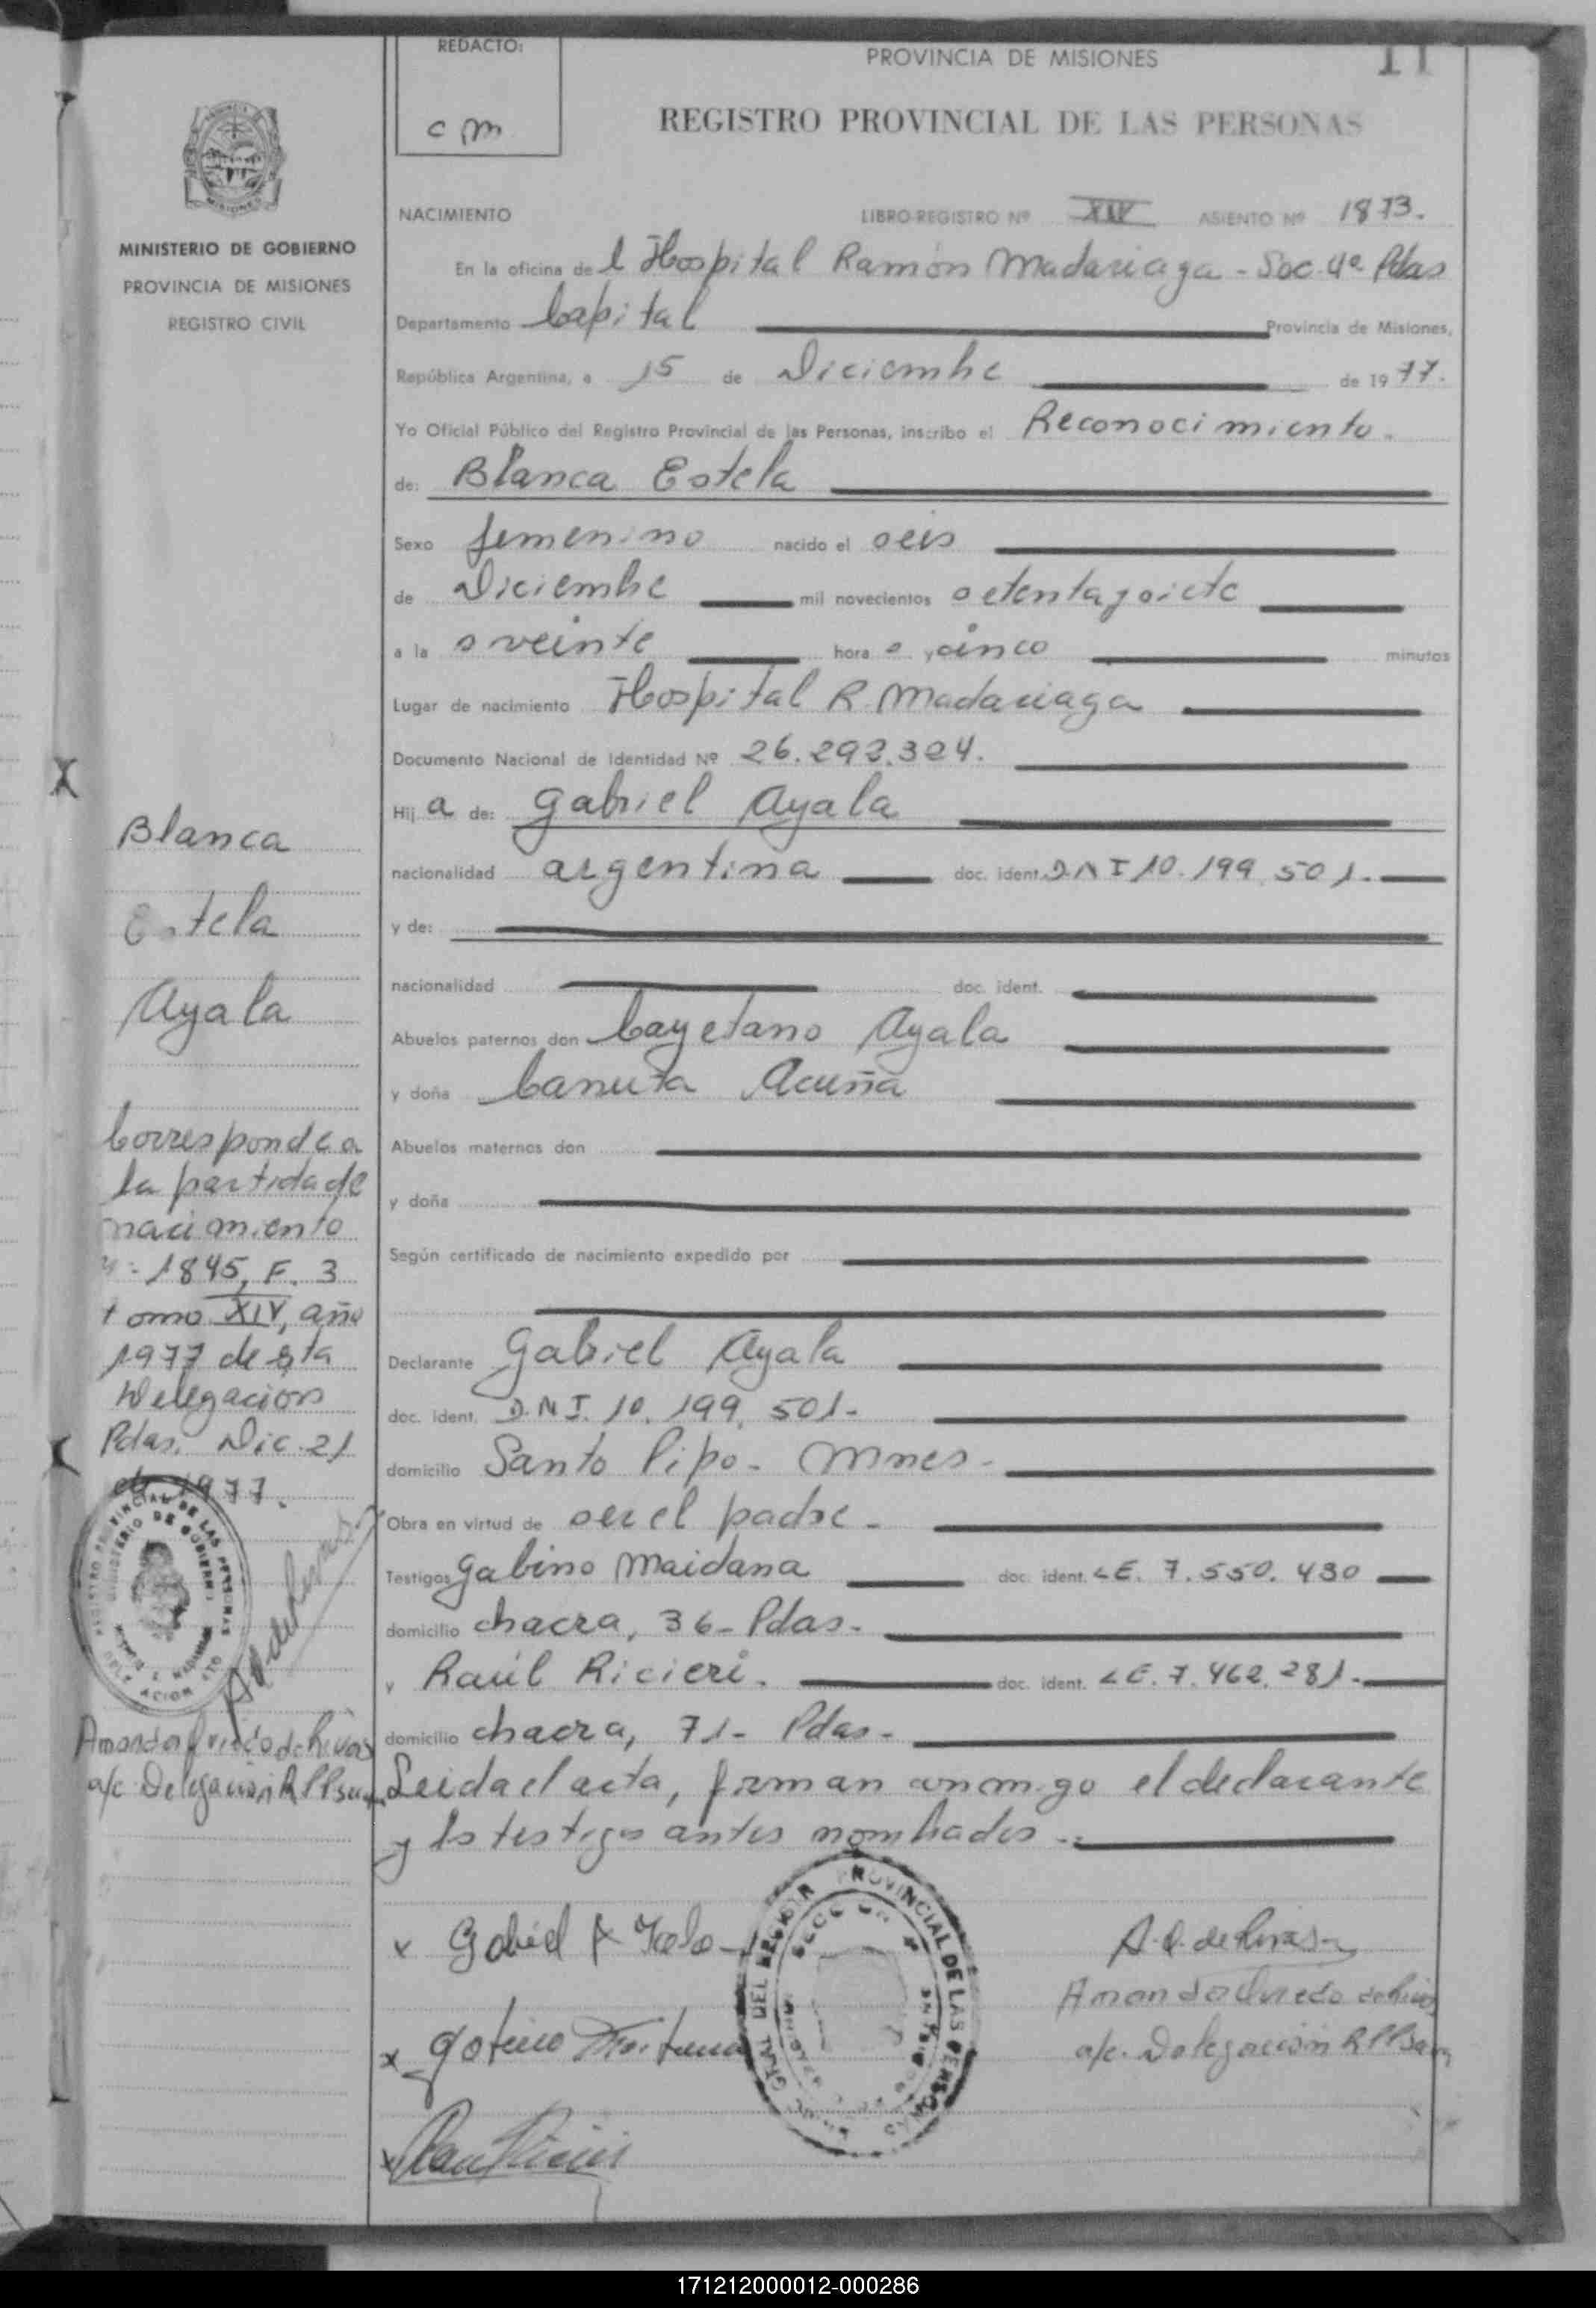 REDACTO:
cm
PROVINCIA DE MISIONES
11
REGISTRO PROVINCIAL DE LAS PERSONAS
MINISTERIO DE GOBIERNO
PROVINCIA DE MISIONES
REGISTRO CIVIL
NACIMIENTO LIBRO-REGISTRO Nº XIV ASIENTO Nº 1873.
En la oficina de l Hospital Ramón Madariaga - Sec. 4ª Pdas
Departamento Capital Provincia de Misiones,
República Argentina, a 15 de Diciembre de 1977.
Yo Oficial Público del Registro Provincial de las Personas, inscribo el Reconocimiento.
de: Blanca Estela
Sexo femenino nacido el seis
de Diciembre mil novecientos setenta y siete
a las veinte horas y cinco minutos
Lugar de nacimiento Hospital R. Madariaga
Documento Nacional de Identidad Nº 26.292.324.
Hij a de: Gabriel Ayala
nacionalidad argentina doc. ident. D.N.I 10.199.501.
y de:
nacionalidad doc. ident.
Abuelos paternos don Cayetano Ayala
y doña Canuta Acuña
Abuelos maternos don
y doña
Según certificado de nacimiento expedido por
Declarante Gabriel Ayala
doc. ident. D.N.I. 10.199.501.-
domicilio Santo Pipo - Mnes -
Obra en virtud de ser el padre -
Testigos Gabino Maidana doc. ident. LE. 7.550.430
domicilio chacra, 36 - Pdas -
y Raúl Ricieri. doc. ident. LE. 7.462.281.-
domicilio chacra, 71 - Pdas -
Leida el acta, firman conmigo el declarante
y los testigos antes nombrados -
Blanca
Estela
Ayala
Corresponde a
la partida de
nacimiento
nº 1845, F. 3
tomo XIV, año
1977 de esta
Delegación
Pdas. Dic. 21
de 1977.
Amanda Oviedo de Rivas
a/c. Delegación
A.O. de Rivas
Amanda Oviedo de Rivas
a/c. Delegación
PROVINCIAL DE LAS PERSONAS
171212000012-000286